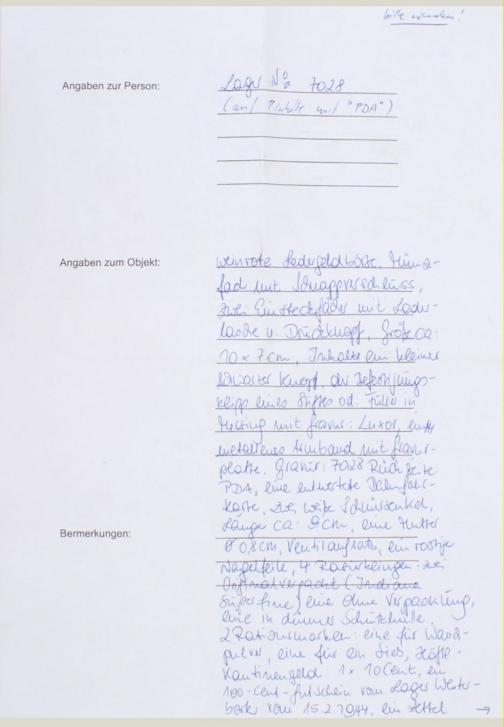 bitte wenden!
Angaben zur Person:
Lager No 7028
(auf mit "PDA")
Angaben zum Objekt:
weinrote Ledergeldbörse, Münz-
fach mit Schnappverschluss,
zwei Einsteckfächer mit Leder-
lasche u. Druckknopf, Größe ca:
10 x 7 cm, Inhalt: ein kleiner
schwarzer Knopf, der Befestigungs-
klipp eines Stiftes od. Füller in
Messing mit Gravur: Luxor, ein
metallenes Armband mit Gravur-
platte. Gravur: 7028 Rückseite:
PDA, eine entwertete Bahnfahr-
karte, zwei weiße Schnürsenkel,
Länge ca: 9cm, eine Mutter
Bermerkungen:
Ø 0,8cm, Ventilaufsatz, ein rostige
Nagelfeile, 4 Rasierklingen: zwei
Originalverpackt (Indiana
Superfine) eine ohne Verpackung,
eine in dünner Schutzhülle,
2 Rationsmarken: eine für Wasch-
pulver, eine für ein
Kantinengeld: 1x 10 Cent, ein
100-cent-Gutschein vom Lager Wester-
bork vom 15.2.1944, ein Zettel →